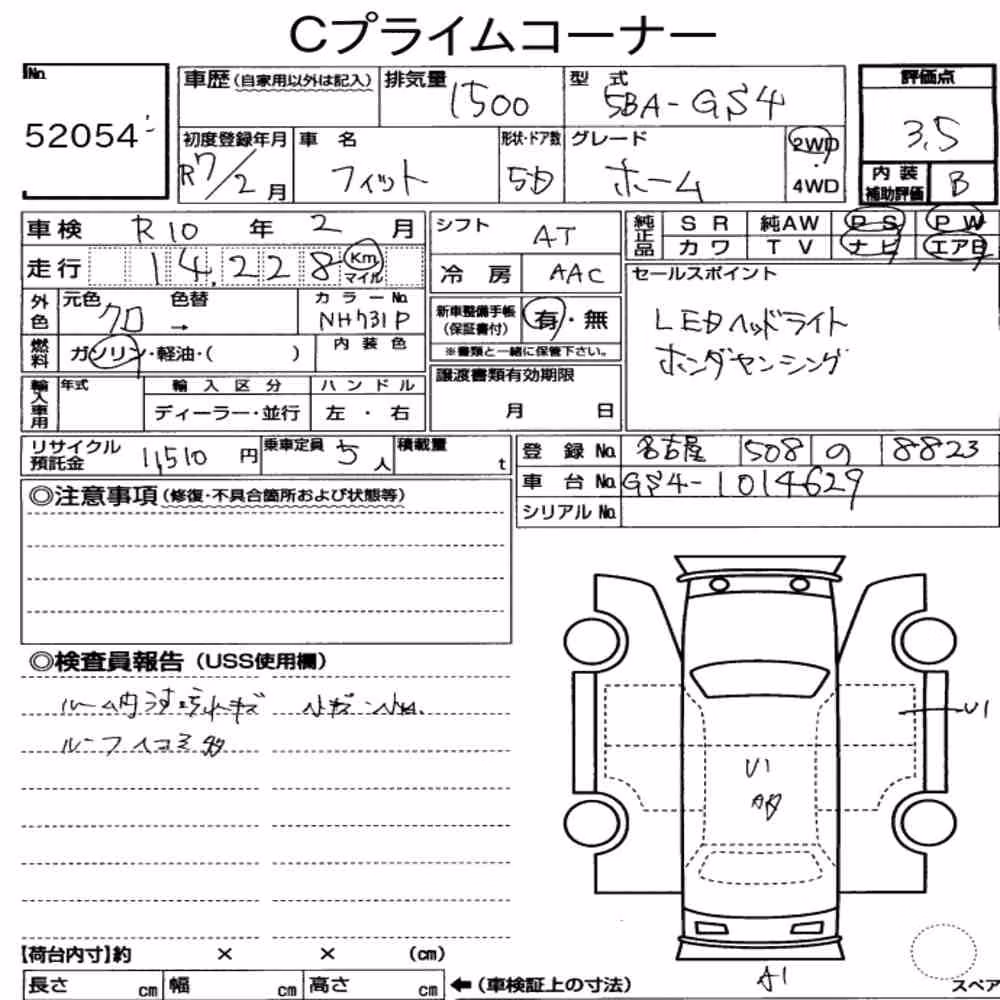 Cプライムコーナー
No.
52054
車歴（自家用以外は記入）
排気量
1500
型 式
5BA-GS4
評価点
3.5
初度登録年月
R7/2月
車 名
フィット
形状・ドア数
5D
グレード
ホーム
2WD
・
4WD
内装
補助評価
B
車検 R10 年 2 月
走行 14,228 Km マイル
シフト AT
冷 房 AAC
純正品
SR 純AW PS PW
カワ TV ナビ エアB
外色
元色 クロ
色替
→
カラーNo.
NH731P
新車整備手帳
（保証書付）
有・無
※書類と一緒に保管下さい。
セールスポイント
LEDヘッドライト
ホンダセンシング
燃料
ガソリン・軽油・（ ）
内装色
輸入車用
年式
輸入区分
ディーラー・並行
ハンドル
左 ・ 右
譲渡書類有効期限
月 日
リサイクル
預託金
11,510 円
乗車定員 5 人
積載量 t
登 録 No. 名古屋 508 の 8823
車 台 No. GS4-1014629
シリアル No.
◎注意事項（修復・不具合箇所および状態等）
◎検査員報告（USS使用欄）
ルーム内
ルーフ
U1
U1
A1
【荷台内寸】約 × × （cm）
長さ cm 幅 cm 高さ cm
←（車検証上の寸法）
スペア